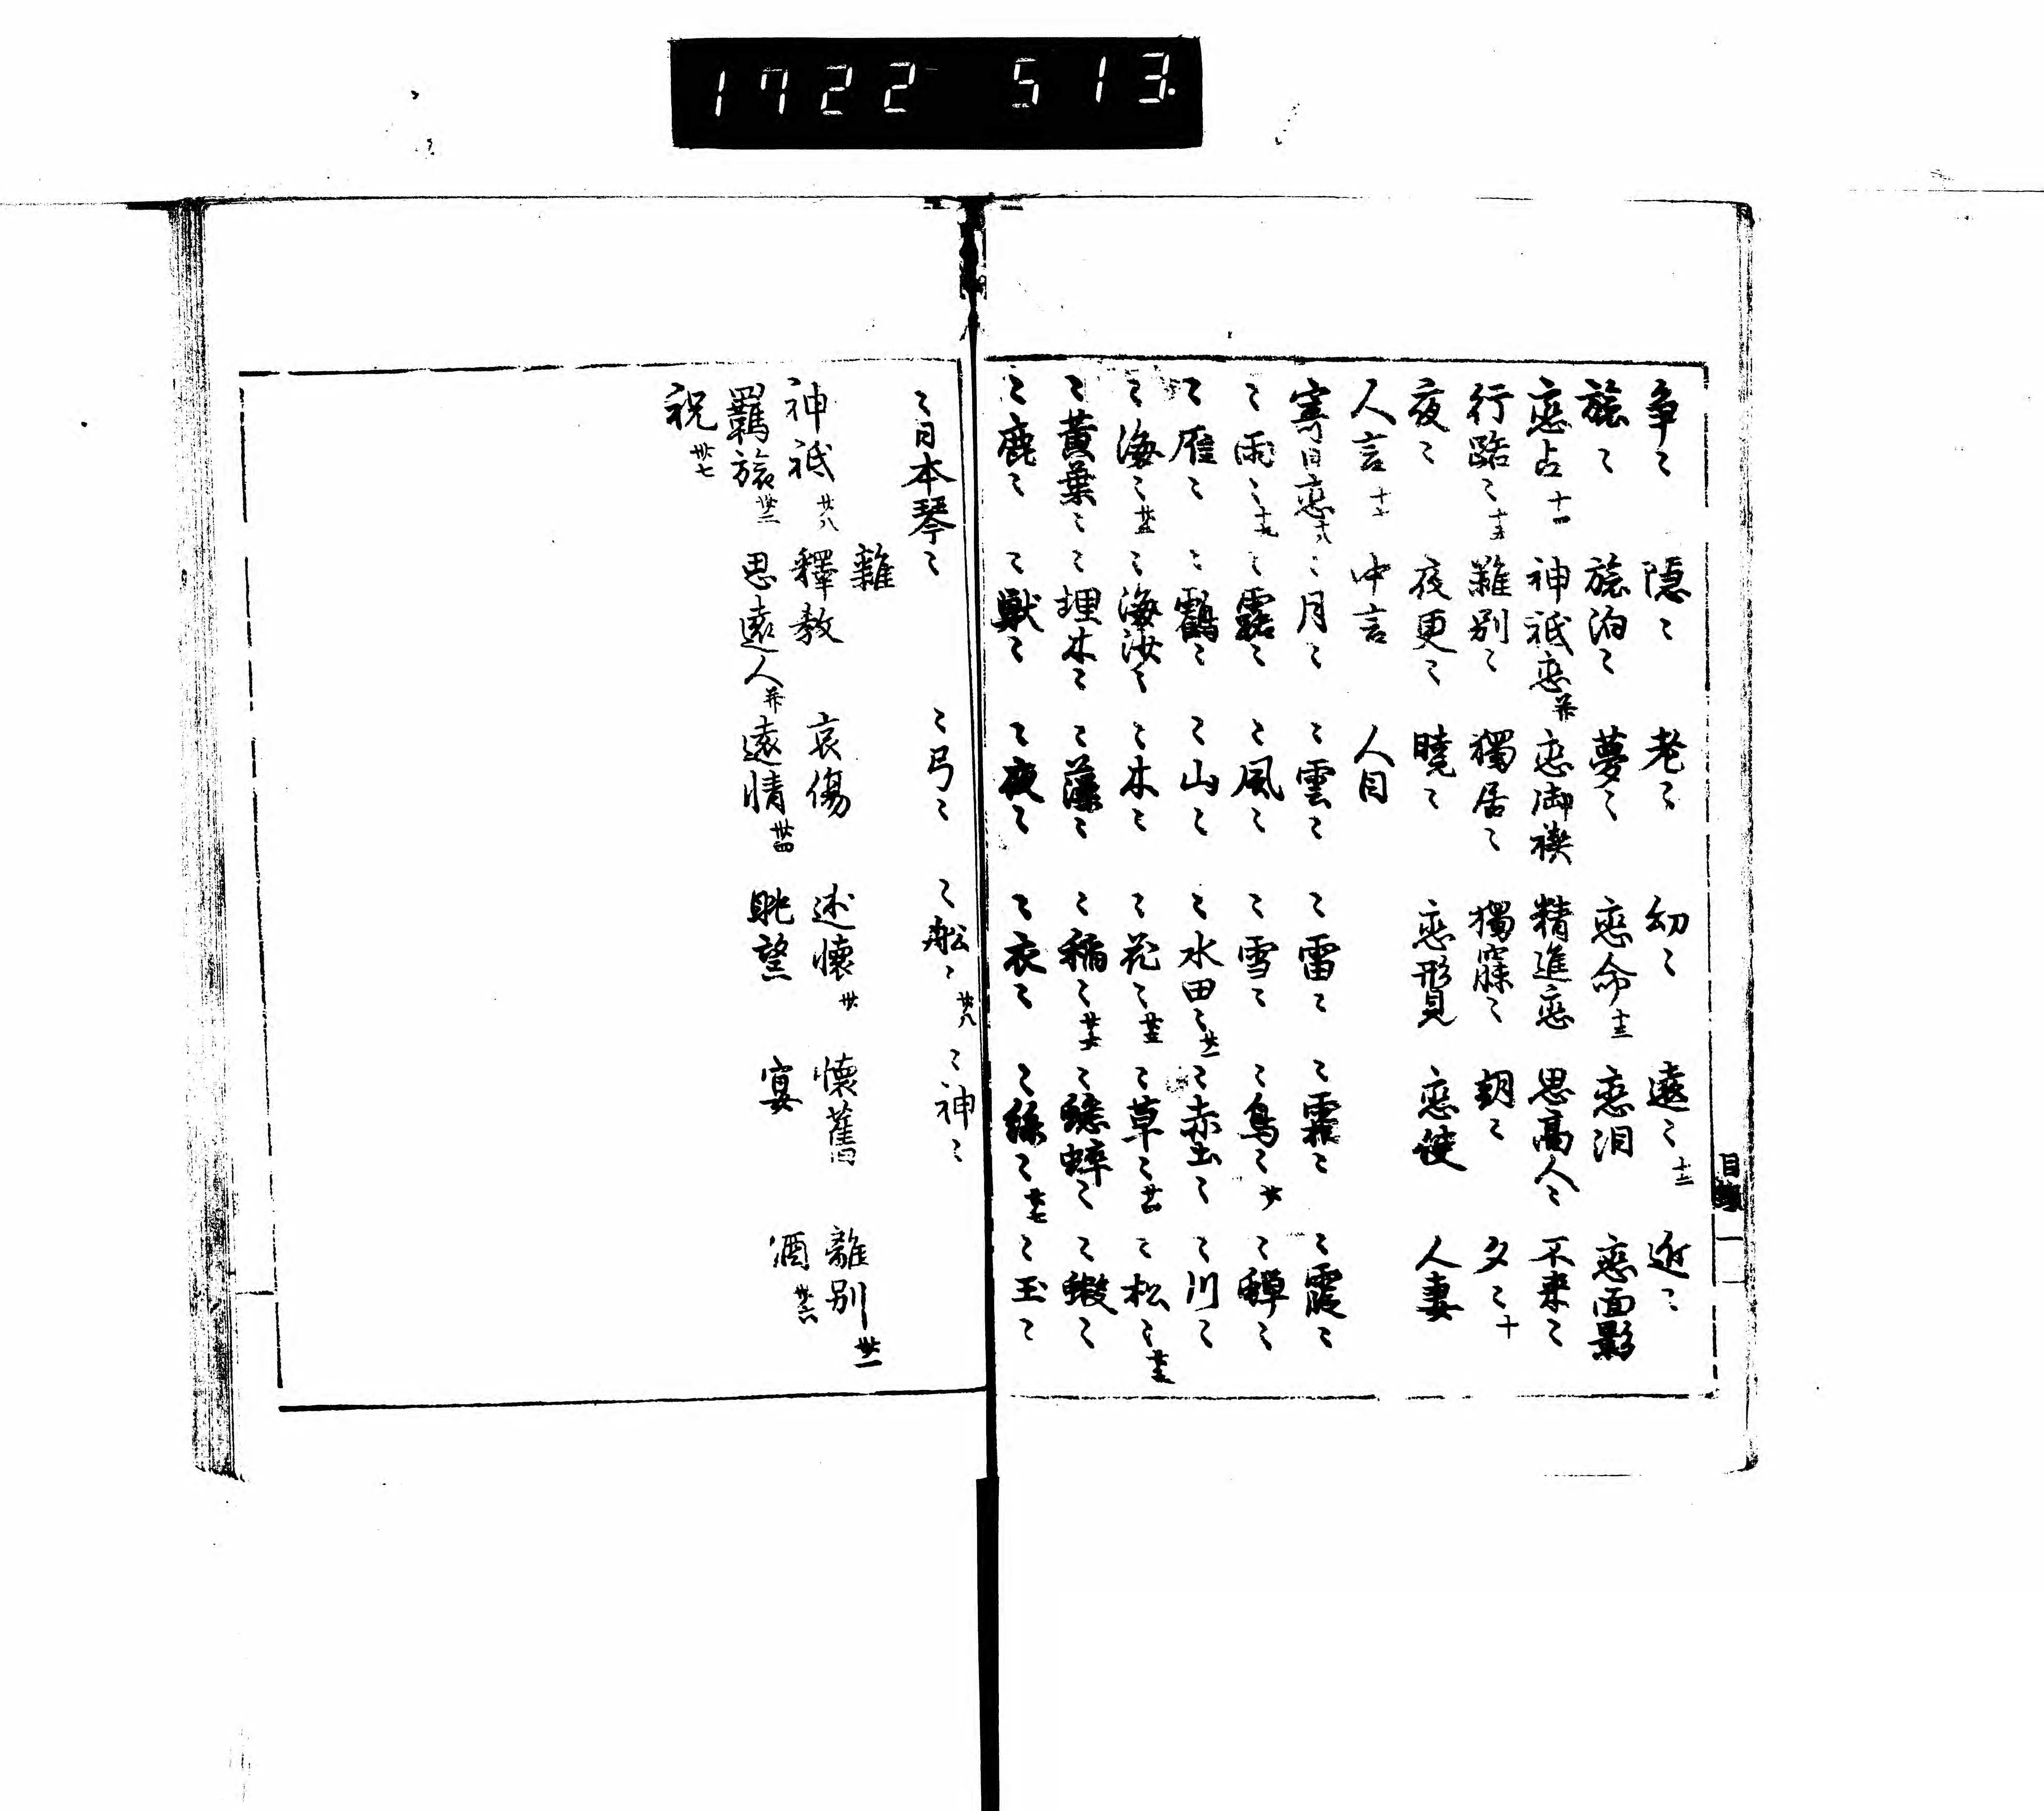 1722 513.
争〻 隠〻 老〻 幼〻 遠〻十二 近〻
旅〻 旅泊〻 夢〻 恋命十三 恋泪 恋面影
恋占十四 神祇恋并 恋御禊 精進恋 思高人〻 不来〻
行路〻十五 離別〻 獨居〻 獨寐〻 朝〻 夕〻十
夜〻 夜更〻 曉〻 恋形見 恋使 人妻
人言十七 中言 人目
寄日恋十八 〻月〻 〻雲〻 〻雷〻 〻霜〻 〻霞〻
〻雨〻十九 〻露〻 〻風〻 〻雪〻 〻鳥〻廿 〻蟬〻
〻雁〻 〻鶴〻 〻山〻 〻水田〻廿一 〻赤土〻 〻川〻
〻海〻廿二 〻海汝〻 〻木〻 〻花〻廿三 〻草〻廿四 〻松〻廿五
〻黄葉〻 〻埋木〻 〻藻〻 〻稲〻廿六 〻蟋蟀〻 〻蝦〻
〻鹿〻 〻獣〻 〻夜〻 〻衣〻 〻絲〻廿七 〻玉〻
目録 一
〻日本琴〻 〻弓〻 〻舩〻廿八 〻神〻
雜
神祇廿八 釋教 哀傷 述懷卅 懷舊 離別卅一
羈旅卅二 思遠人并遠情卅四 眺望 宴 酒卅六
祝卅七